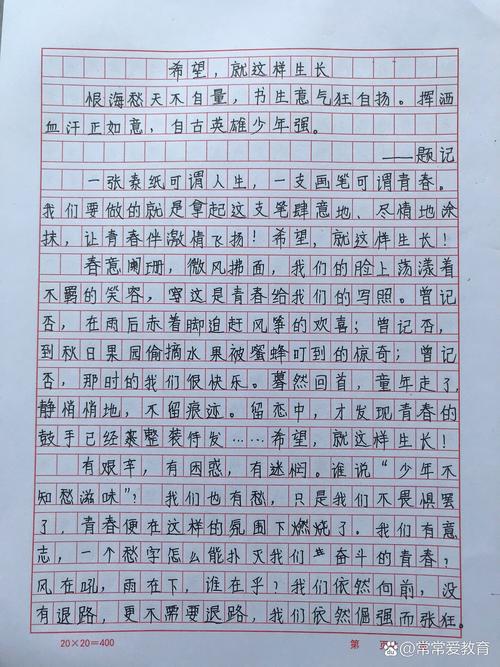 希望，就这样生长
恨海愁天不自量，书生意气狂自扬。挥洒
血汗正如意，自古英雄少年强。
——题记
一张素纸可谓人生，一支画笔可谓青春。
我们要做的就是拿起这支笔肆意地、尽情地涂
抹，让青春伴激情飞扬！希望，就这样生长！
春意阑珊，微风拂面，我们的脸上荡漾着
不羁的笑容，这是青春给我们的写照。曾记
否，在雨后赤着脚追赶风筝的欢喜；曾记否，
到秋日果园偷摘水果被蜜蜂叮到的惊奇；曾记
否，那时的我们很快乐。蓦然回首，童年走了，
静悄悄地，不留痕迹。留恋中，才发现青春的
鼓手已经整装待发……希望，就这样生长！
有艰辛，有困惑，有迷惘。谁说“少年不
知愁滋味”？我们也有愁，只是我们不畏惧罢
了，青春便在这样的氛围下燃烧了。我们有意
志，一个愁字怎么能扑灭我们奋斗的青春？
风在吼，雨在下，谁在乎？我们依然向前，没
有退路，更不需要退路，我们依然倔强而张狂。
20×20=400
第 页
常常爱教育